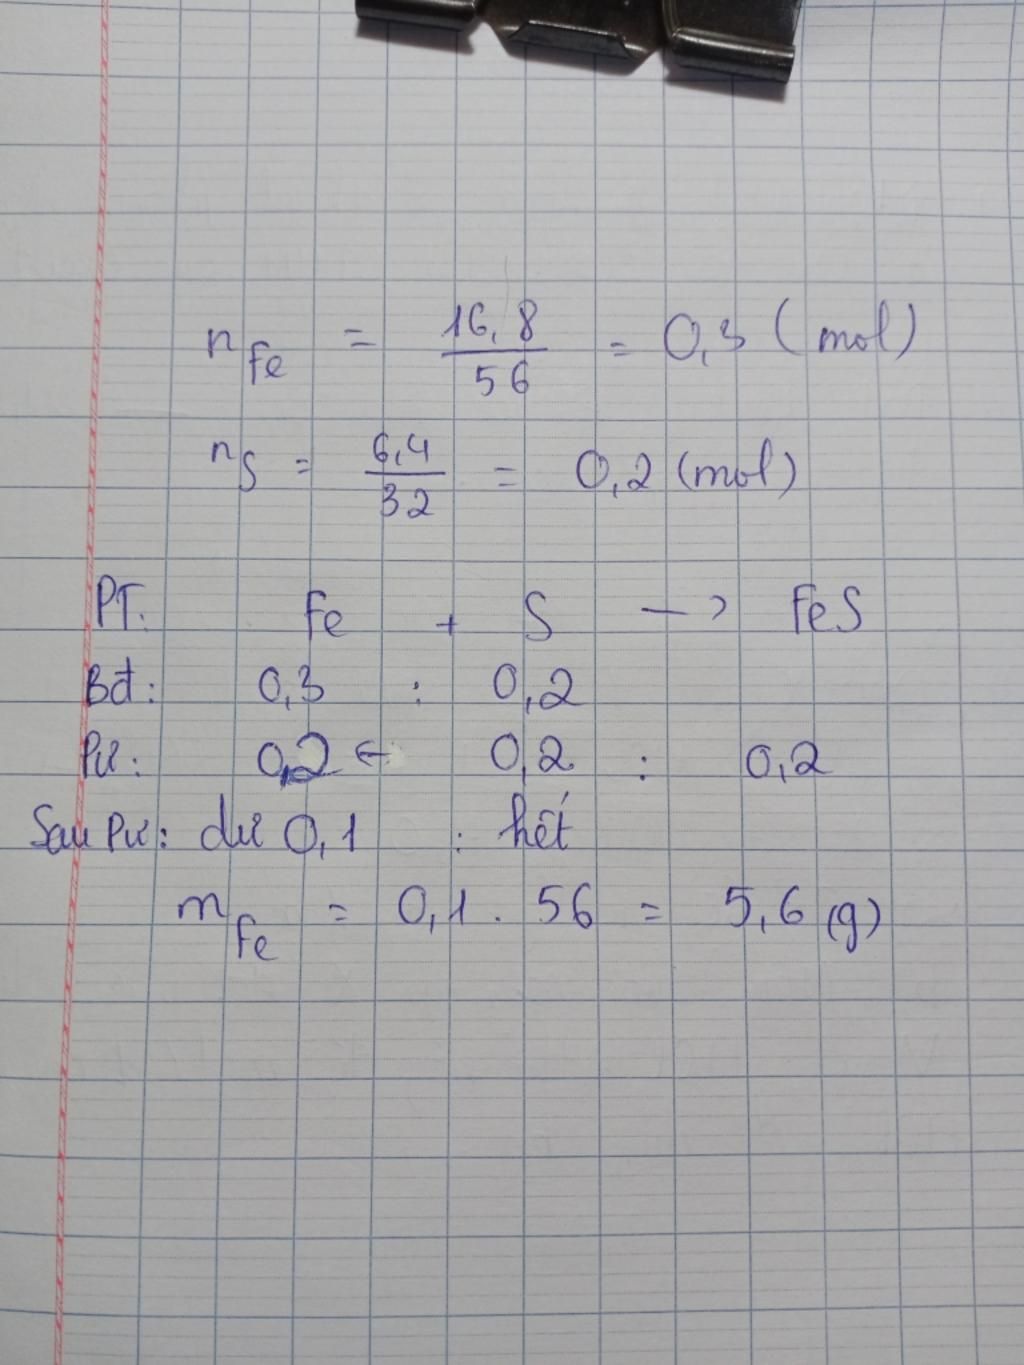 n Fe = 16,8 / 56 = 0,3 (mol)
n S = 6,4 / 32 = 0,2 (mol)
PT: Fe + S —> FeS
Bđ: 0,3 : 0,2
Pư: 0,2 ← 0,2 : 0,2
Sau Pư: dư 0,1 : hết
m Fe = 0,1 . 56 = 5,6 (g)